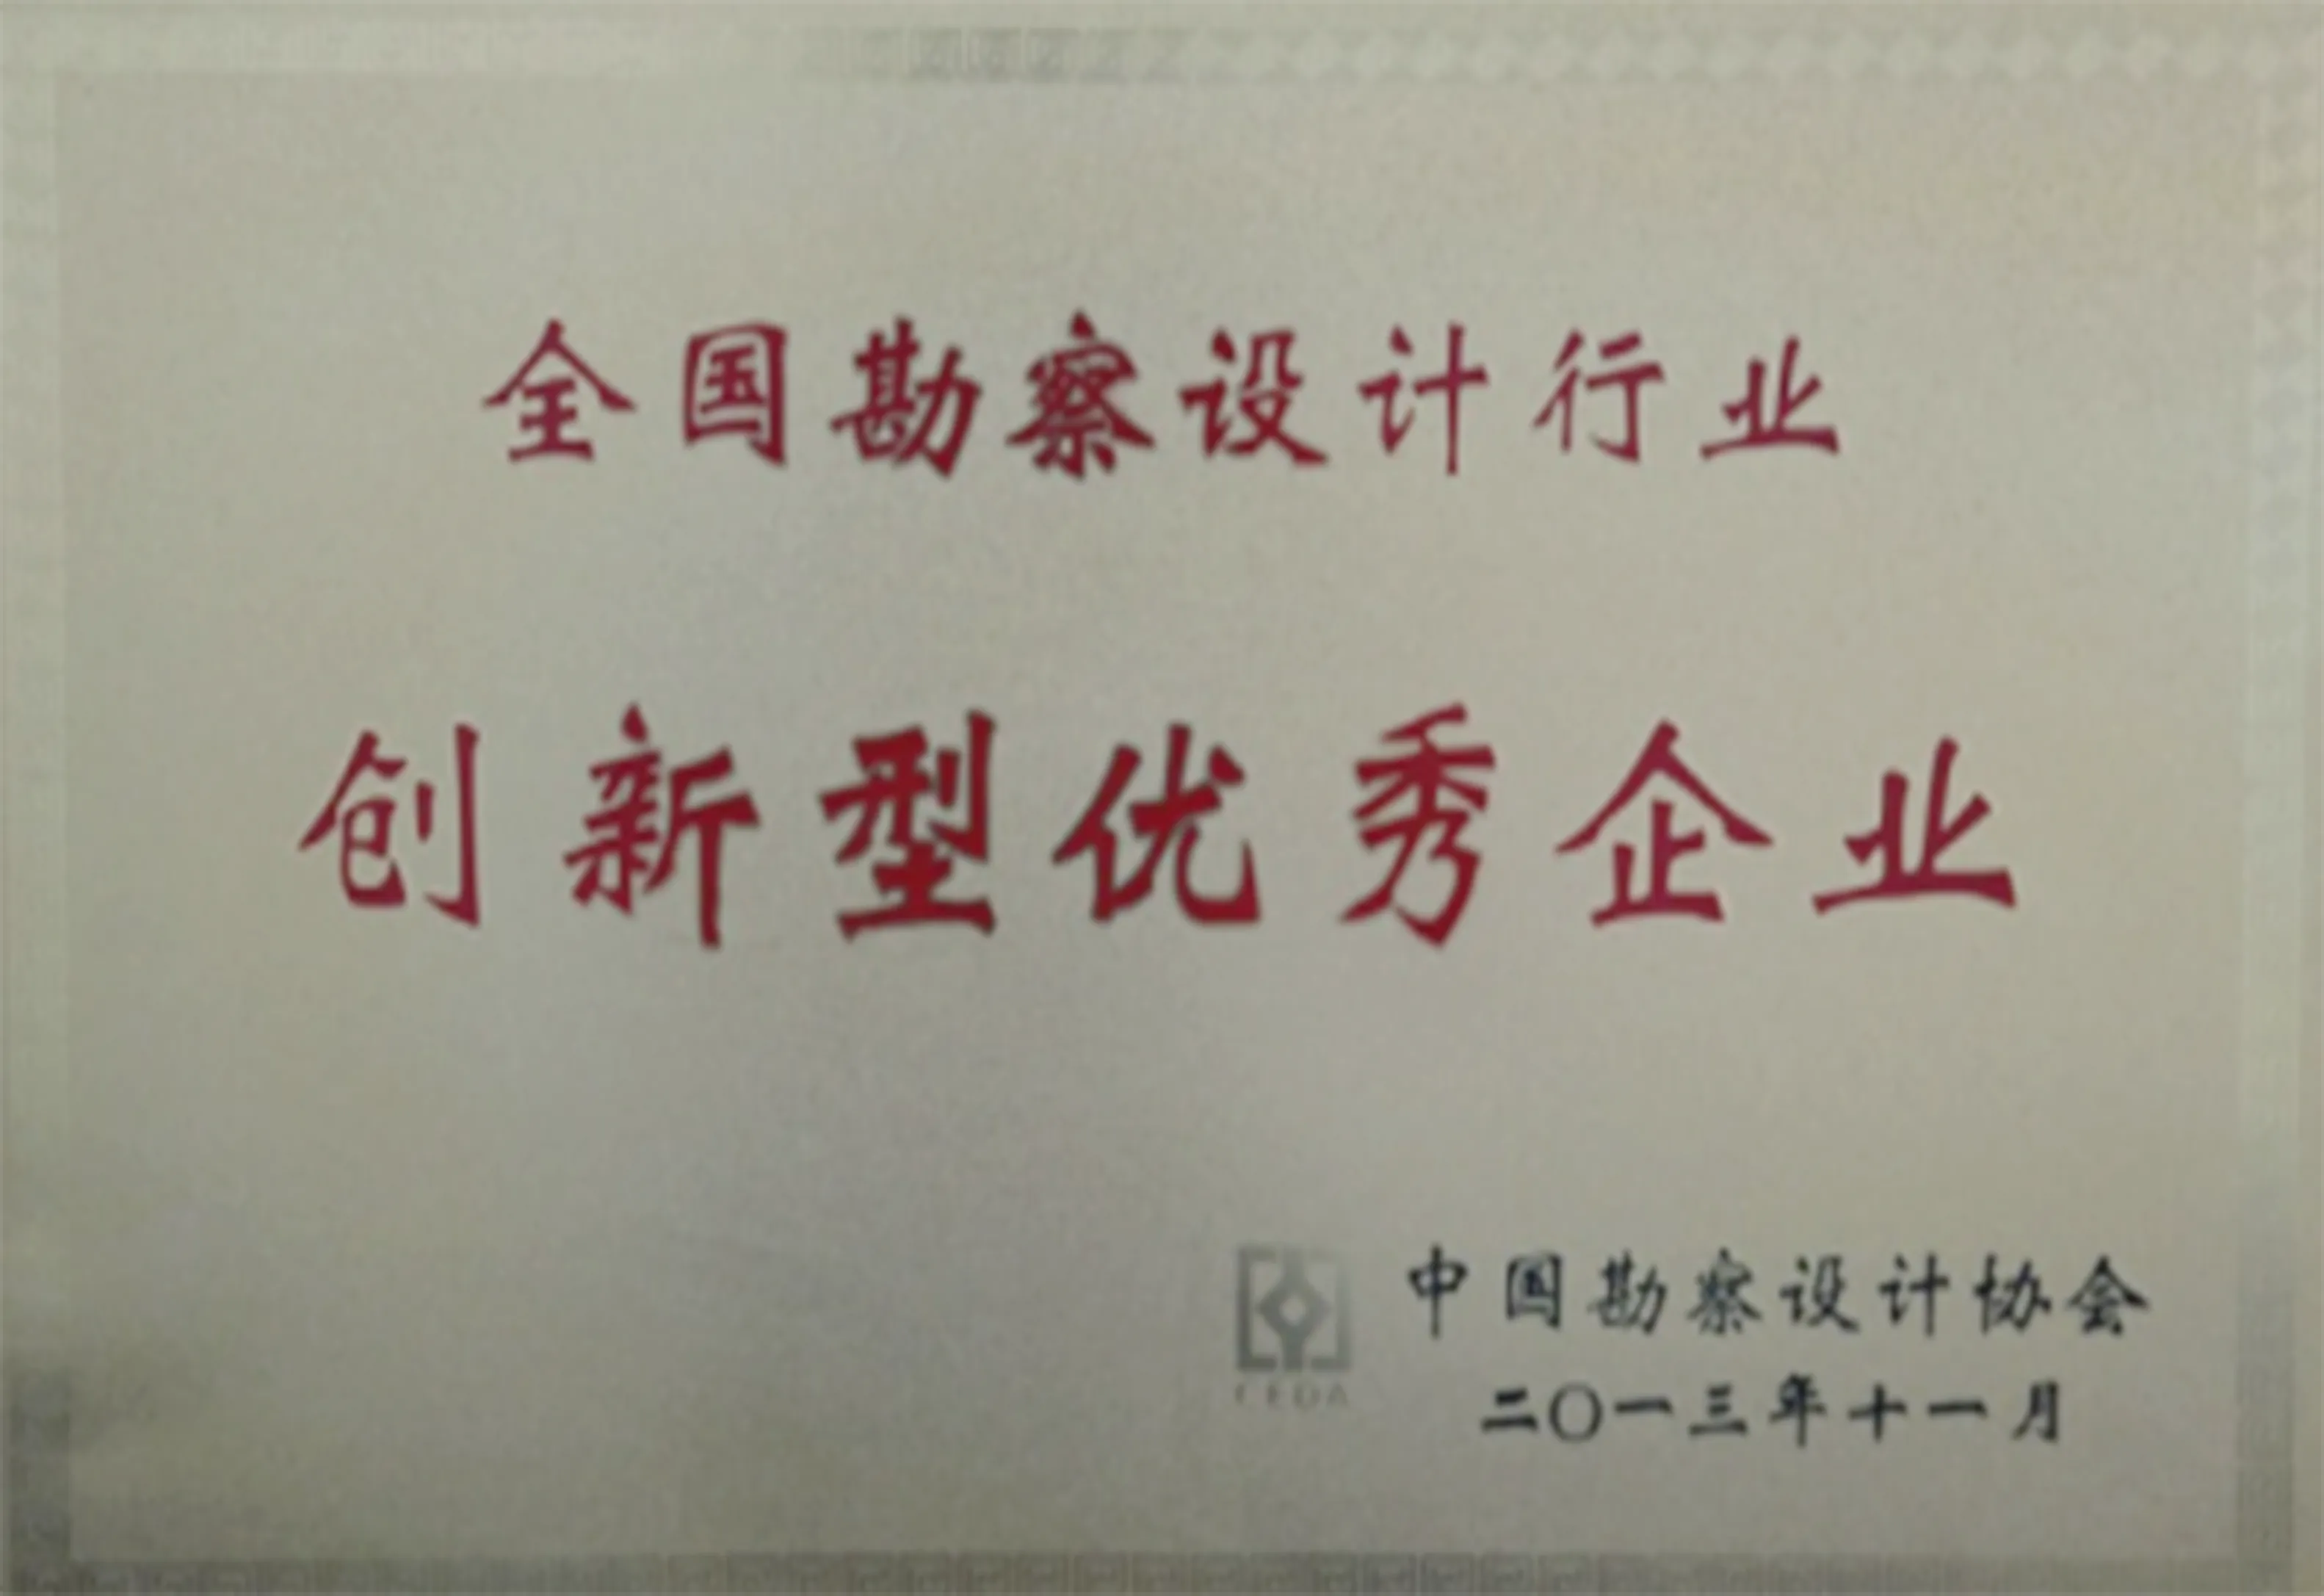 全国勘察设计行业
创新型优秀企业
中国勘察设计协会
CEDA
二〇一三年十一月